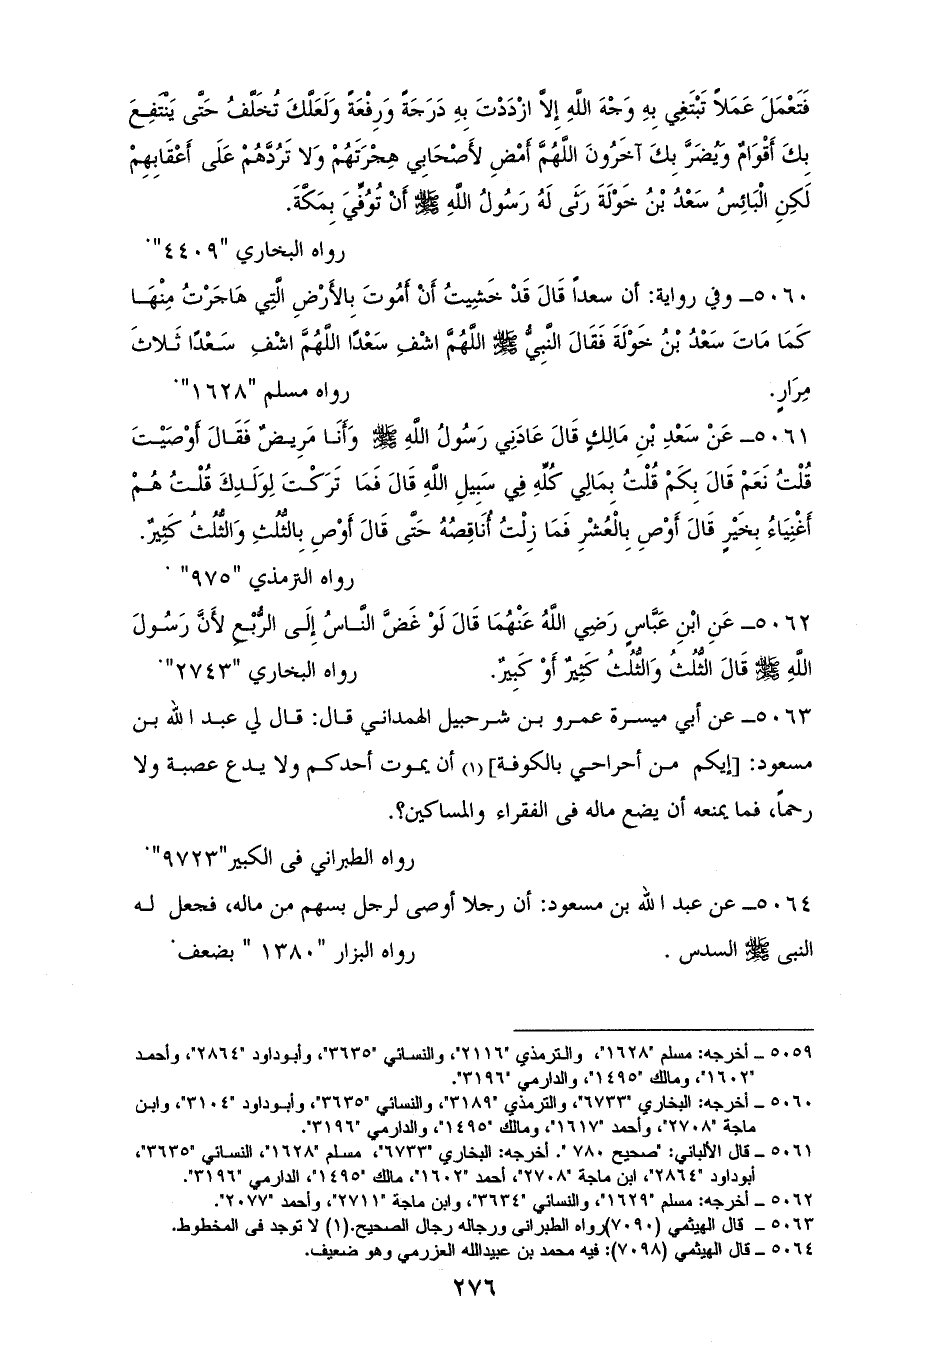 فَتَعْمَلَ عَمَلاً تَبْتَغِي بِهِ وَجْهَ اللَّهِ إِلاَّ ازْدَدْتَ بِهِ دَرَجَةً وَرِفْعَةً وَلَعَلَّكَ تُخَلَّفُ حَتَّى يَنْتَفِعَ
بِكَ أَقْوَامٌ وَيُضَرَّ بِكَ آخَرُونَ اللَّهُمَّ أَمْضِ لأَصْحَابِي هِجْرَتَهُمْ وَلا تَرُدَّهُمْ عَلَى أَعْقَابِهِمْ
لَكِنِ الْبَائِسُ سَعْدُ بْنُ خَوْلَةَ رَثَى لَهُ رَسُولُ اللَّهِ ﷺ أَنْ تُوُفِّيَ بِمَكَّةَ.
رواه البخاري "٤٤٠٩".
٥٠٦٠ــ وفي رواية: أن سعداً قَالَ قَدْ خَشِيتُ أَنْ أَمُوتَ بِالأَرْضِ الَّتِي هَاجَرْتُ مِنْهَا
كَمَا مَاتَ سَعْدُ بْنُ خَوْلَةَ فَقَالَ النَّبِيُّ ﷺ اللَّهُمَّ اشْفِ سَعْدًا اللَّهُمَّ اشْفِ سَعْدًا ثَلاثَ
مِرَارٍ. رواه مسلم "١٦٢٨".
٥٠٦١ــ عَنْ سَعْدِ بْنِ مَالِكٍ قَالَ عَادَنِي رَسُولُ اللَّهِ ﷺ وَأَنَا مَرِيضٌ فَقَالَ أَوْصَيْتَ
قُلْتُ نَعَمْ قَالَ بِكَمْ قُلْتُ بِمَالِي كُلِّهِ فِي سَبِيلِ اللَّهِ قَالَ فَمَا تَرَكْتَ لِوَلَدِكَ قُلْتُ هُمْ
أَغْنِيَاءُ بِخَيْرٍ قَالَ أَوْصِ بِالْعُشْرِ فَمَا زِلْتُ أُنَاقِصُهُ حَتَّى قَالَ أَوْصِ بِالثُّلُثِ وَالثُّلُثُ كَثِيرٌ.
رواه الترمذي "٩٧٥".
٥٠٦٢ــ عَنِ ابْنِ عَبَّاسٍ رَضِيَ اللَّهُ عَنْهُمَا قَالَ لَوْ غَضَّ النَّاسُ إِلَى الرُّبْعِ لأَنَّ رَسُولَ
اللَّهِ ﷺ قَالَ الثُّلُثُ وَالثُّلُثُ كَثِيرٌ أَوْ كَبِيرٌ. رواه البخاري "٢٧٤٣".
٥٠٦٣ــ عن أبي ميسرة عمرو بن شرحبيل الهمداني قال: قال لي عبد الله بن
مسعود: [إيكم من أحراحي بالكوفة](١) أن يموت أحدكم ولا يدع عصبة ولا
رحماً، فما يمنعه أن يضع ماله فى الفقراء والمساكين؟.
رواه الطبراني فى الكبير"٩٧٢٣".
٥٠٦٤ــ عن عبد الله بن مسعود: أن رجلا أوصى لرجل بسهم من ماله، فجعل له
النبى ﷺ السدس . رواه البزار "١٣٨٠ " بضعف.
٥٠٥٩ ــ أخرجه: مسلم "١٦٢٨"، والترمذي "٢١١٦"، والنسائي "٣٦٣٥"، وأبوداود "٢٨٦٤"، وأحمد
"١٦٠٢"، ومالك "١٤٩٥"، والدارمي "٣١٩٦".
٥٠٦٠ ــ أخرجه: البخاري "٦٧٣٣"، والترمذي "٣١٨٩"، والنسائي "٣٦٣٥"، وأبوداود "٣١٠٤"، وابن
ماجة "٢٧٠٨"، وأحمد "١٦١٧"، ومالك "١٤٩٥"، والدارمي "٣١٩٦".
٥٠٦١ ــ قال الألباني: "صحيح ٧٨٠ ". أخرجه: البخاري "٦٧٣٣"، مسلم "١٦٢٨"، النسائي "٣٦٣٥"،
أبوداود "٢٨٦٤"، ابن ماجة "٢٧٠٨"، أحمد "١٦٠٢"، مالك "١٤٩٥"، الدارمي "٣١٩٦".
٥٠٦٢ ــ أخرجه: مسلم "١٦٢٩"، والنسائي "٣٦٣٤"، وابن ماجة "٢٧١١"، وأحمد "٢٠٧٧".
٥٠٦٣ ــ قال الهيثمي (٧٠٩٠)رواه الطبرانى ورجاله رجال الصحيح.(١) لا توجد فى المخطوط.
٥٠٦٤ ــ قال الهيثمي (٧٠٩٨): فيه محمد بن عبيدالله العزرمي وهو ضعيف.
٢٧٦